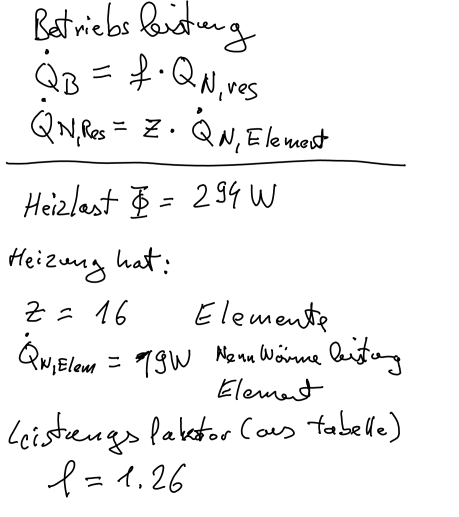 Betriebsleistung
Q̇_B = f · Q_N,res
Q̇_N,Res = z · Q̇_N,Element
Heizlast Φ = 294 W
Heizung hat:
z = 16 Elemente
Q̇_N,Elem = 79W Nennwärmeleistung
Element
Leistungsfaktor (aus tabelle)
f = 1.26